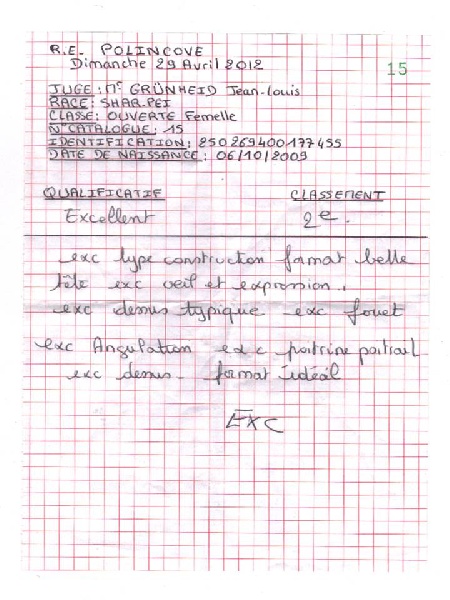 R.E. POLINCOVE
Dimanche 29 Avril 2012
15
JUGE : Mr GRÜNHEID Jean-Louis
RACE : SHAR-PEI
CLASSE : OUVERTE Femelle
N° CATALOGUE : 15
IDENTIFICATION : 250269400177455
DATE DE NAISSANCE : 06/10/2009
QUALIFICATIF CLASSEMENT
Excellent 2e.
exc type construction format belle
tête exc oeil et expression..
exc dessus typique exc fouet
exc Angulation exc poitrine poitrail
exc dessus. format idéal
EXC